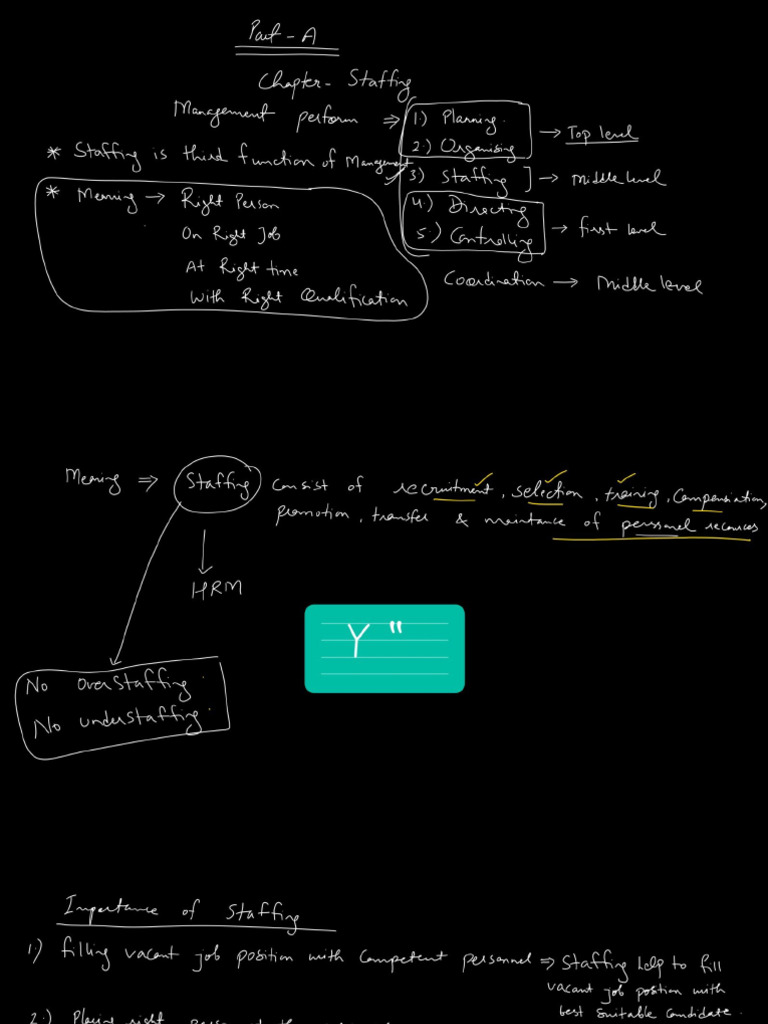 Part - A
Chapter - Staffing
Management perform ⇒ 1.) Planning.
2.) Organising → Top level
* Staffing is third function of Management
3.) Staffing ] → Middle level
* Meaning → Right Person
On Right Job
At Right time
With Right Qualification
4.) Directing
5.) Controlling → first level
Coordination → Middle level
Meaning ⇒ Staffing consist of recruitment, selection, training, Compensation,
promotion, transfer & maintance of personal recources
↓
HRM
Y "
No OverStaffing.
No understaffing.
Importance of Staffing
1.) filling vacant job position with Competent personnel ⇒ Staffing help to fill
vacant job position with
best Suitable Candidate.
2.) Placing right